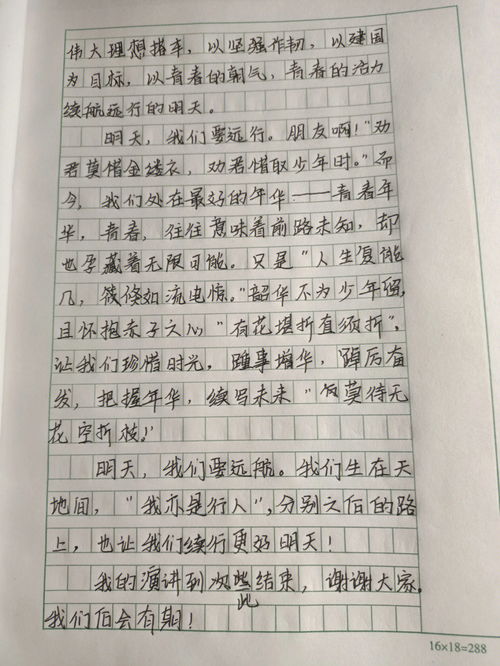 伟大理想搭车，以坚强作韧，以建国
为目标，以青春的朝气，青春的活力
续航远行的明天。
明天，我们要远行。朋友啊！"劝
君莫惜金缕衣，劝君惜取少年时。"而
今，我们处在最好的年华——青春年
华，青春，往往意味着前路未知，却
也孕藏着无限可能。只是"人生复能
几，倏倏如流电惊。"韶华不为少年留，
且怀抱赤子之心"有花堪折直须折"，
让我们珍惜时光，踵事增华，踔厉奋
发，把握年华，续写未来"勿莫待无
花空折枝。"
明天，我们要远航。我们生在天
地间，"我亦是行人"，分别之后的路
上，也让我们续行更好明天！
我的演讲到此结束，谢谢大家。
我们后会有期！
16×18=288